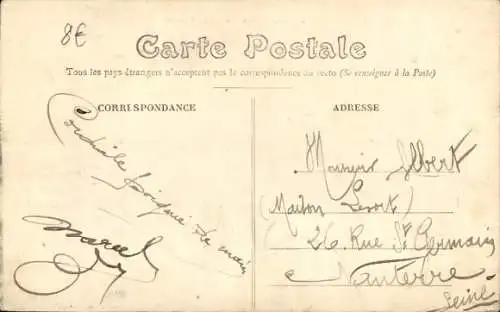 8€
Carte Postale
Tous les pays étrangers n'acceptent pas la correspondance au recto (Se renseigner à la Poste)
CORRESPONDANCE
ADRESSE
Cordiale poignée de main
Marcel
Monsieur Albert
(Maison Leroit)
26 Rue St Germain
Nanterre
Seine